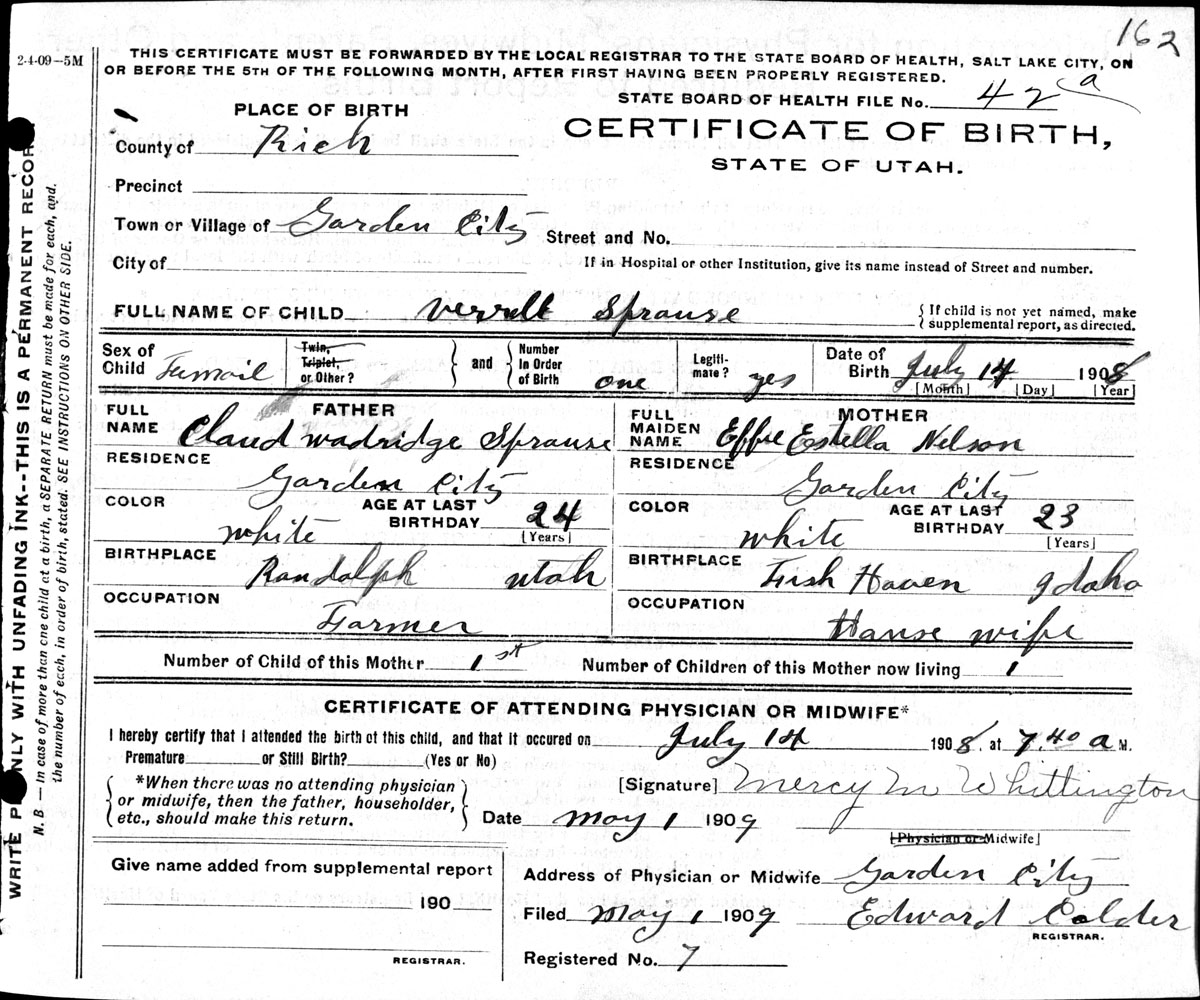 162
2-4-09--5M
THIS CERTIFICATE MUST BE FORWARDED BY THE LOCAL REGISTRAR TO THE STATE BOARD OF HEALTH, SALT LAKE CITY, ON
OR BEFORE THE 5TH OF THE FOLLOWING MONTH, AFTER FIRST HAVING BEEN PROPERLY REGISTERED.
STATE BOARD OF HEALTH FILE No. 42 a
PLACE OF BIRTH
CERTIFICATE OF BIRTH,
STATE OF UTAH.
County of Rich
Precinct
Town or Village of Garden City
Street and No.
City of
If in Hospital or other Institution, give its name instead of Street and number.
FULL NAME OF CHILD Sprause
If child is not yet named, make
supplemental report, as directed.
Sex of Child Femail
Twin, Triplet, or Other?
and
Number in Order of Birth one
Legitimate? yes
Date of Birth July 14 1908
[Month] [Day] [Year]
FATHER
FULL NAME Claud Wadridge Sprause
RESIDENCE Garden City
COLOR white
AGE AT LAST BIRTHDAY 24
[Years]
BIRTHPLACE Randolph Utah
OCCUPATION Farmer
MOTHER
FULL MAIDEN NAME Effie Estella Nelson
RESIDENCE Garden City
COLOR white
AGE AT LAST BIRTHDAY 23
[Years]
BIRTHPLACE Fish Haven Idaho
OCCUPATION Hause wife
Number of Child of this Mother 1st
Number of Children of this Mother now living 1
CERTIFICATE OF ATTENDING PHYSICIAN OR MIDWIFE*
I hereby certify that I attended the birth of this child, and that it occured on July 14 1908, at 7.40 a M.
Premature or Still Birth? (Yes or No)
*When there was no attending physician
or midwife, then the father, householder,
etc., should make this return.
[Signature] Mercy M Whittington
Date May 1 1909
[Physician or Midwife]
Give name added from supplemental report
190
REGISTRAR.
Address of Physician or Midwife Garden City
Filed May 1 1909 Edward Calder
REGISTRAR.
Registered No. 7
WRITE PLAINLY WITH UNFADING INK--THIS IS A PERMANENT RECORD
N. B. — In case of more than one child at a birth, a SEPARATE RETURN must be made for each, and
the number of each, in order of birth, stated. SEE INSTRUCTIONS ON OTHER SIDE.